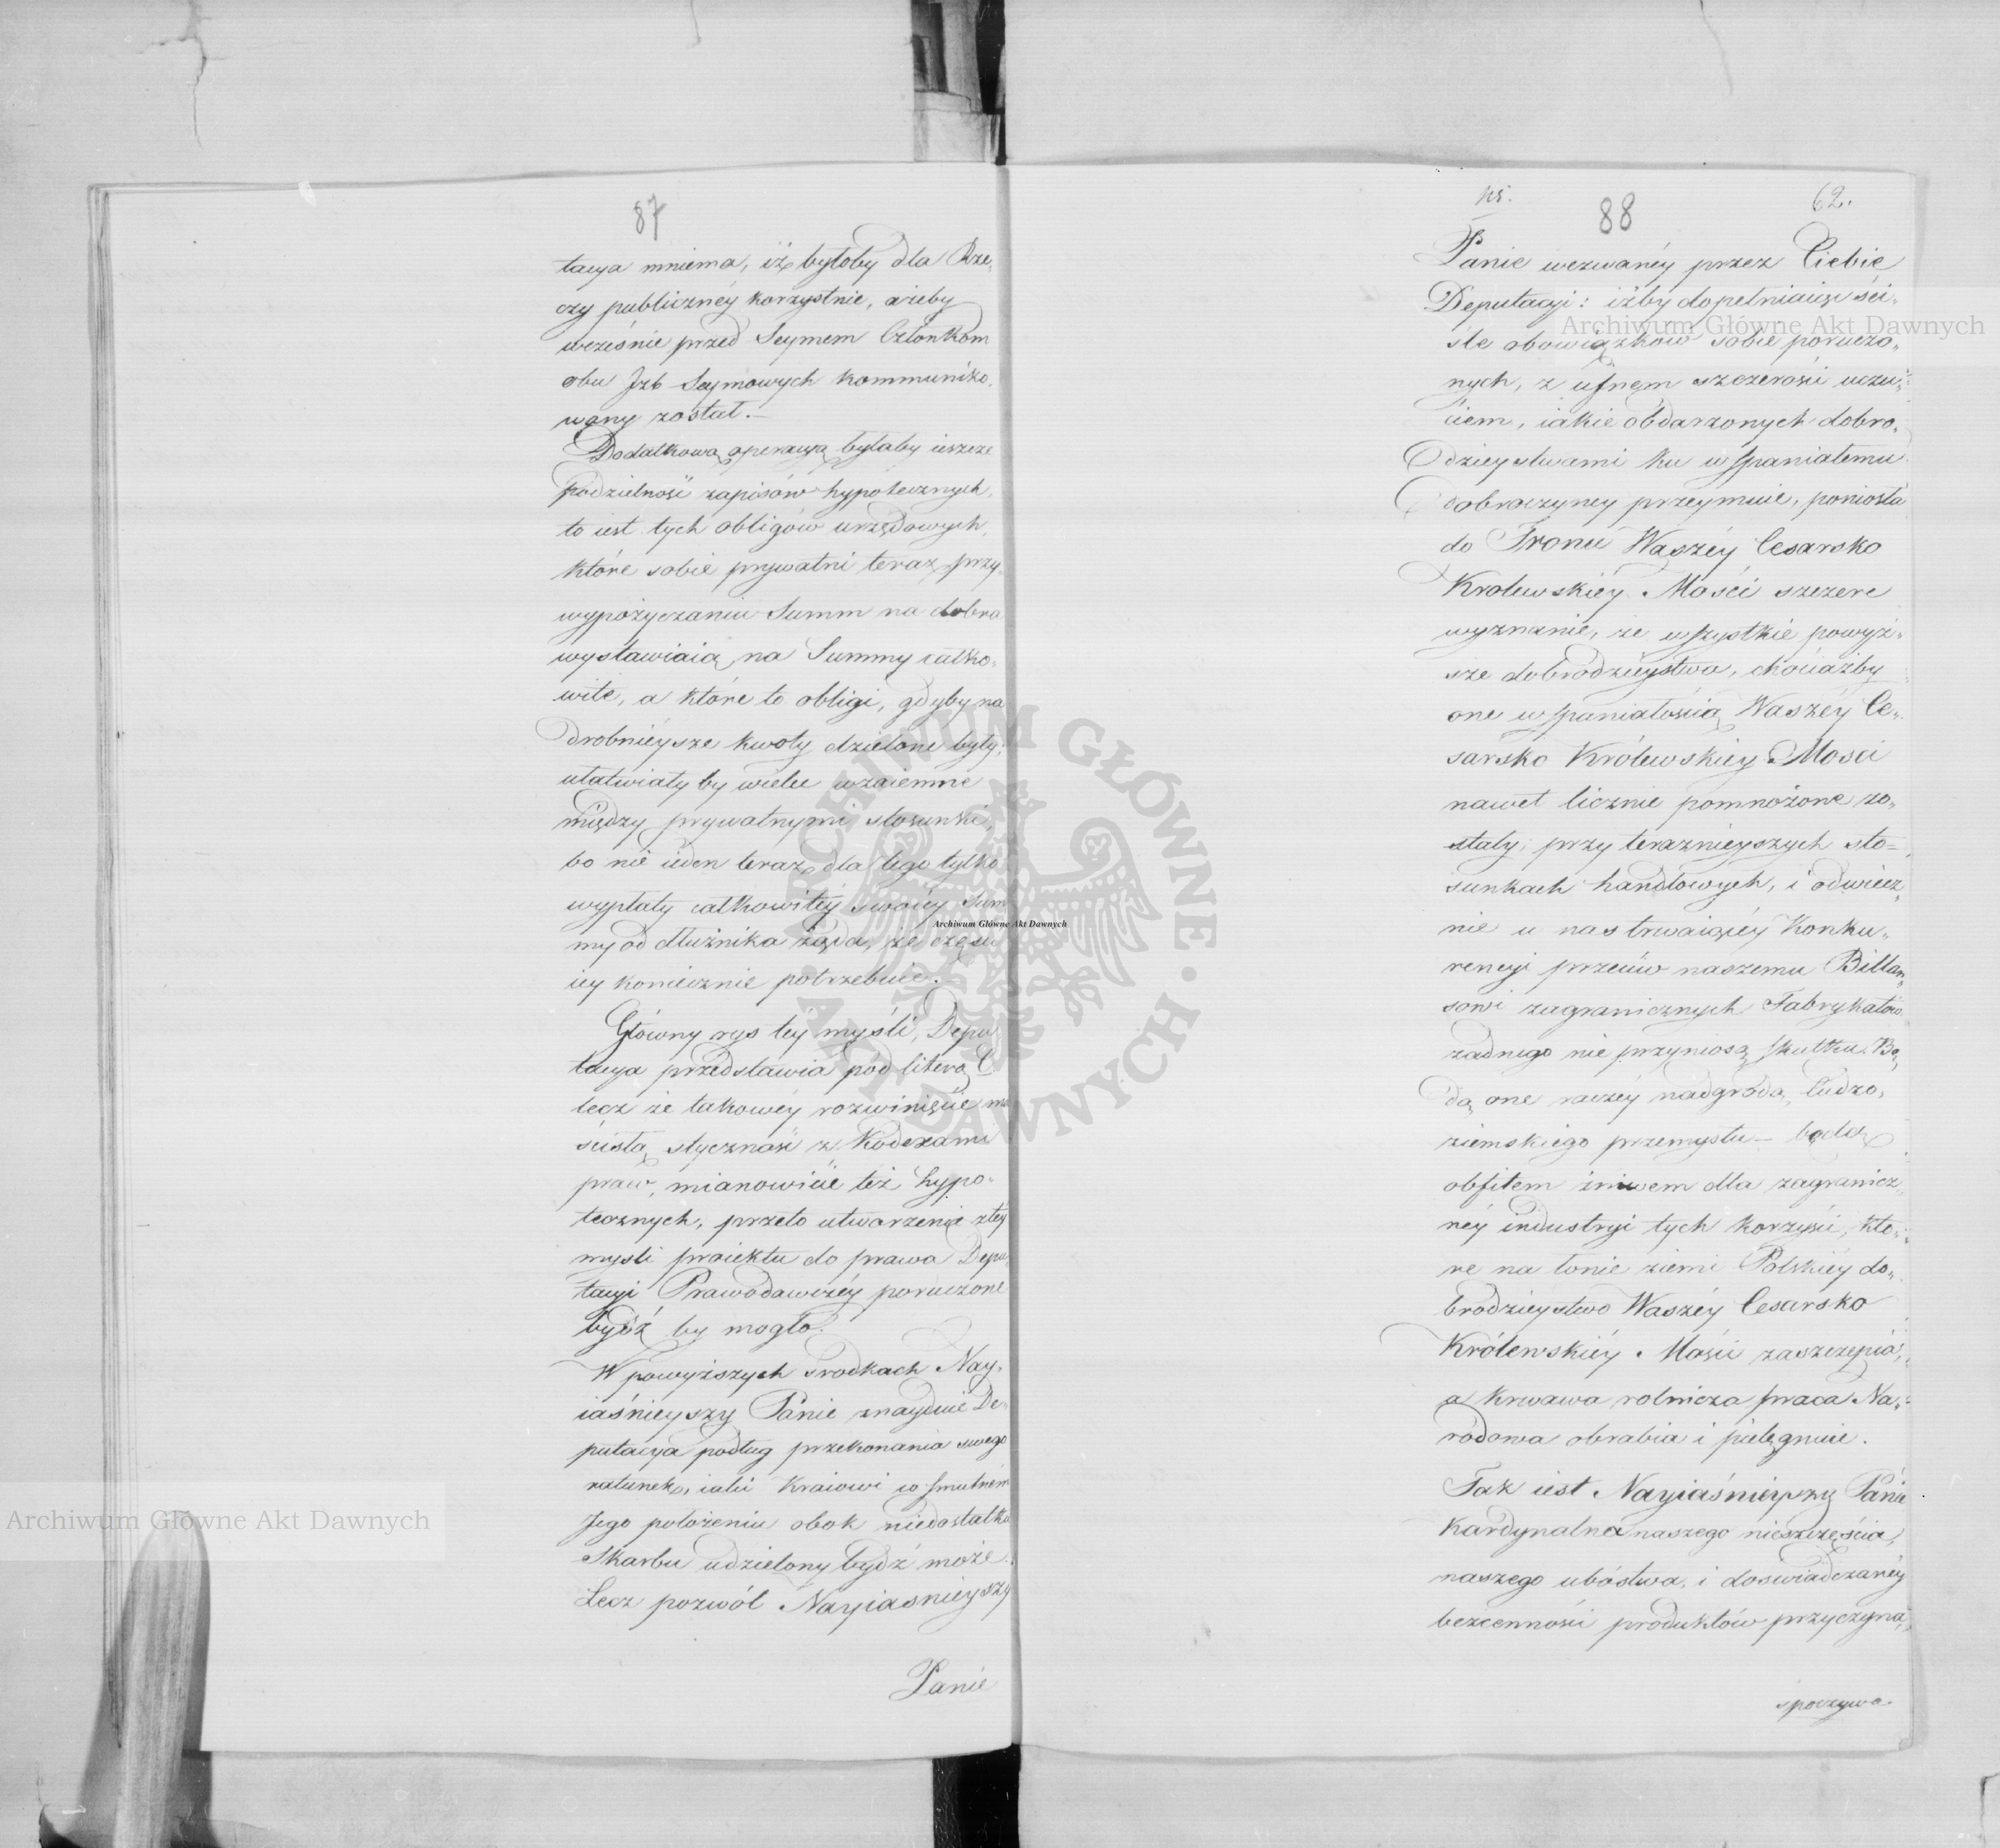 87
tacya mniema, iż byłoby dla Rze,
czy publicznéy korzystnie, ażeby
wcześnie przed Seymem Członkom
obu Jzb Seymowych kommuniko,
wany został.—
Dodatkową operacyą byłaby ieszcze
podzielność zapisów hypotecznych,
to iest tych obligów urzędowych,
które sobie prywatni teraz przy,
wypożyczaniu Summ na dobra
wystawiaią na Summy całko,
wite, a które to obligi, gdyby na
drobniéysze kwoty dzielone były,
ułatwiały by wiele wzaiemne
między prywatnymi stosunki,
bo nie ieden teraz dla tego tylko
wypłaty całkowitéy swoiéy Sum
my od dłużnika żąda, że części
iéy koniecznie potrzebuie.
Główny rys téy myśli, Depu
tacya przedstawia pod literą C.
lecz że takowéy rozwinięcie ma
ścisłą styczność z Kodexami
praw, mianowicie też hypo,
tecznych, przeto utworzenie z téy
myśli proiektu do prawa Depu
tacyi Prawodawczéy poruczone
bydź by mogło.
W powyższych środkach Nay,
iaśnieyszy Panie znayduie De,
putacya podług przekonania swego
ratunek, iaki Kraiowi w smutném
Jego położeniu obok niedostatku
Skarbu udzielony bydź może.
Lecz pozwól Nayiaśnieyszy
Panie
88
62.
Panie wezwanéy przez Ciebie
Deputacyi: iżby dopełniaiąc ści,
śle obowiązków sobie poruczo,
nych, z ufnem szczerości uczu,
ciem, iakie obdarzonych dobro,
dzieystwami ku wspaniałemu
dobroczyńcy przeymuie, poniosła
do Tronu Waszéy Cesarsko
Krolewskiéy Mości szczere
wyznanie, że wszystkie powyż,
sze dobrodzieystwa, chociażby
one wspaniałością Waszéy Ce,
sarsko Królewskiéy Mosci
nawet licznie pomnożone zo,
stały, przy terazniéyszych sto=
sunkach handlowych, i odwiecz,
nie u nas trwaiącéy Konku,
rencyi przeciw naszemu Billan,
sowi zagranicznych Fabrykatów
żadnego nie przyniosą skutku. Bę,
dą one raczéy nadgrodą, cudzo,
ziemskiego przemysłu — będą
obfitem żniwem dla zagranicz,
néy industryi tych korzyści, któ,
re na łonie ziemi Polskiéy do,
brodzieystwo Waszéy Cesarsko
Królewskiéy Mości zaszczepia,
a krwawa rolnicza praca Na,
rodowa obrabia i pielęgnuie.
Tak iest Nayiaśnieyszy Panie
Kardynalna naszego nieszczęścia,
naszego ubóstwa, i doswiadczanéy
bezcenności produktów przyczyna,
spoczywa
Archiwum Główne Akt Dawnych
Archiwum Główne Akt Dawnych
Archiwum Główne Akt Dawnych
ARCHIWUM GŁÓWNE · AKT DAWNYCH ·